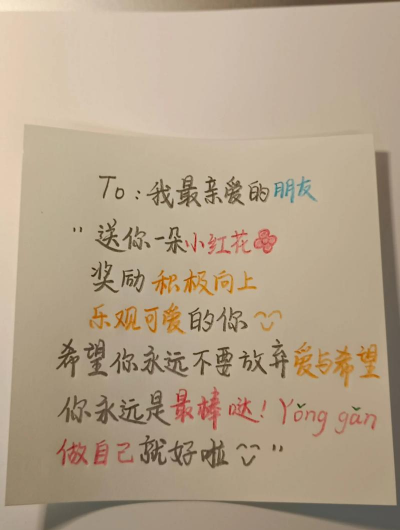 To:我最亲爱的朋友
"送你一朵小红花
奖励积极向上
乐观可爱的你
希望你永远不要放弃爱与希望
你永远是最棒哒!Yǒng gǎn
做自己就好啦"